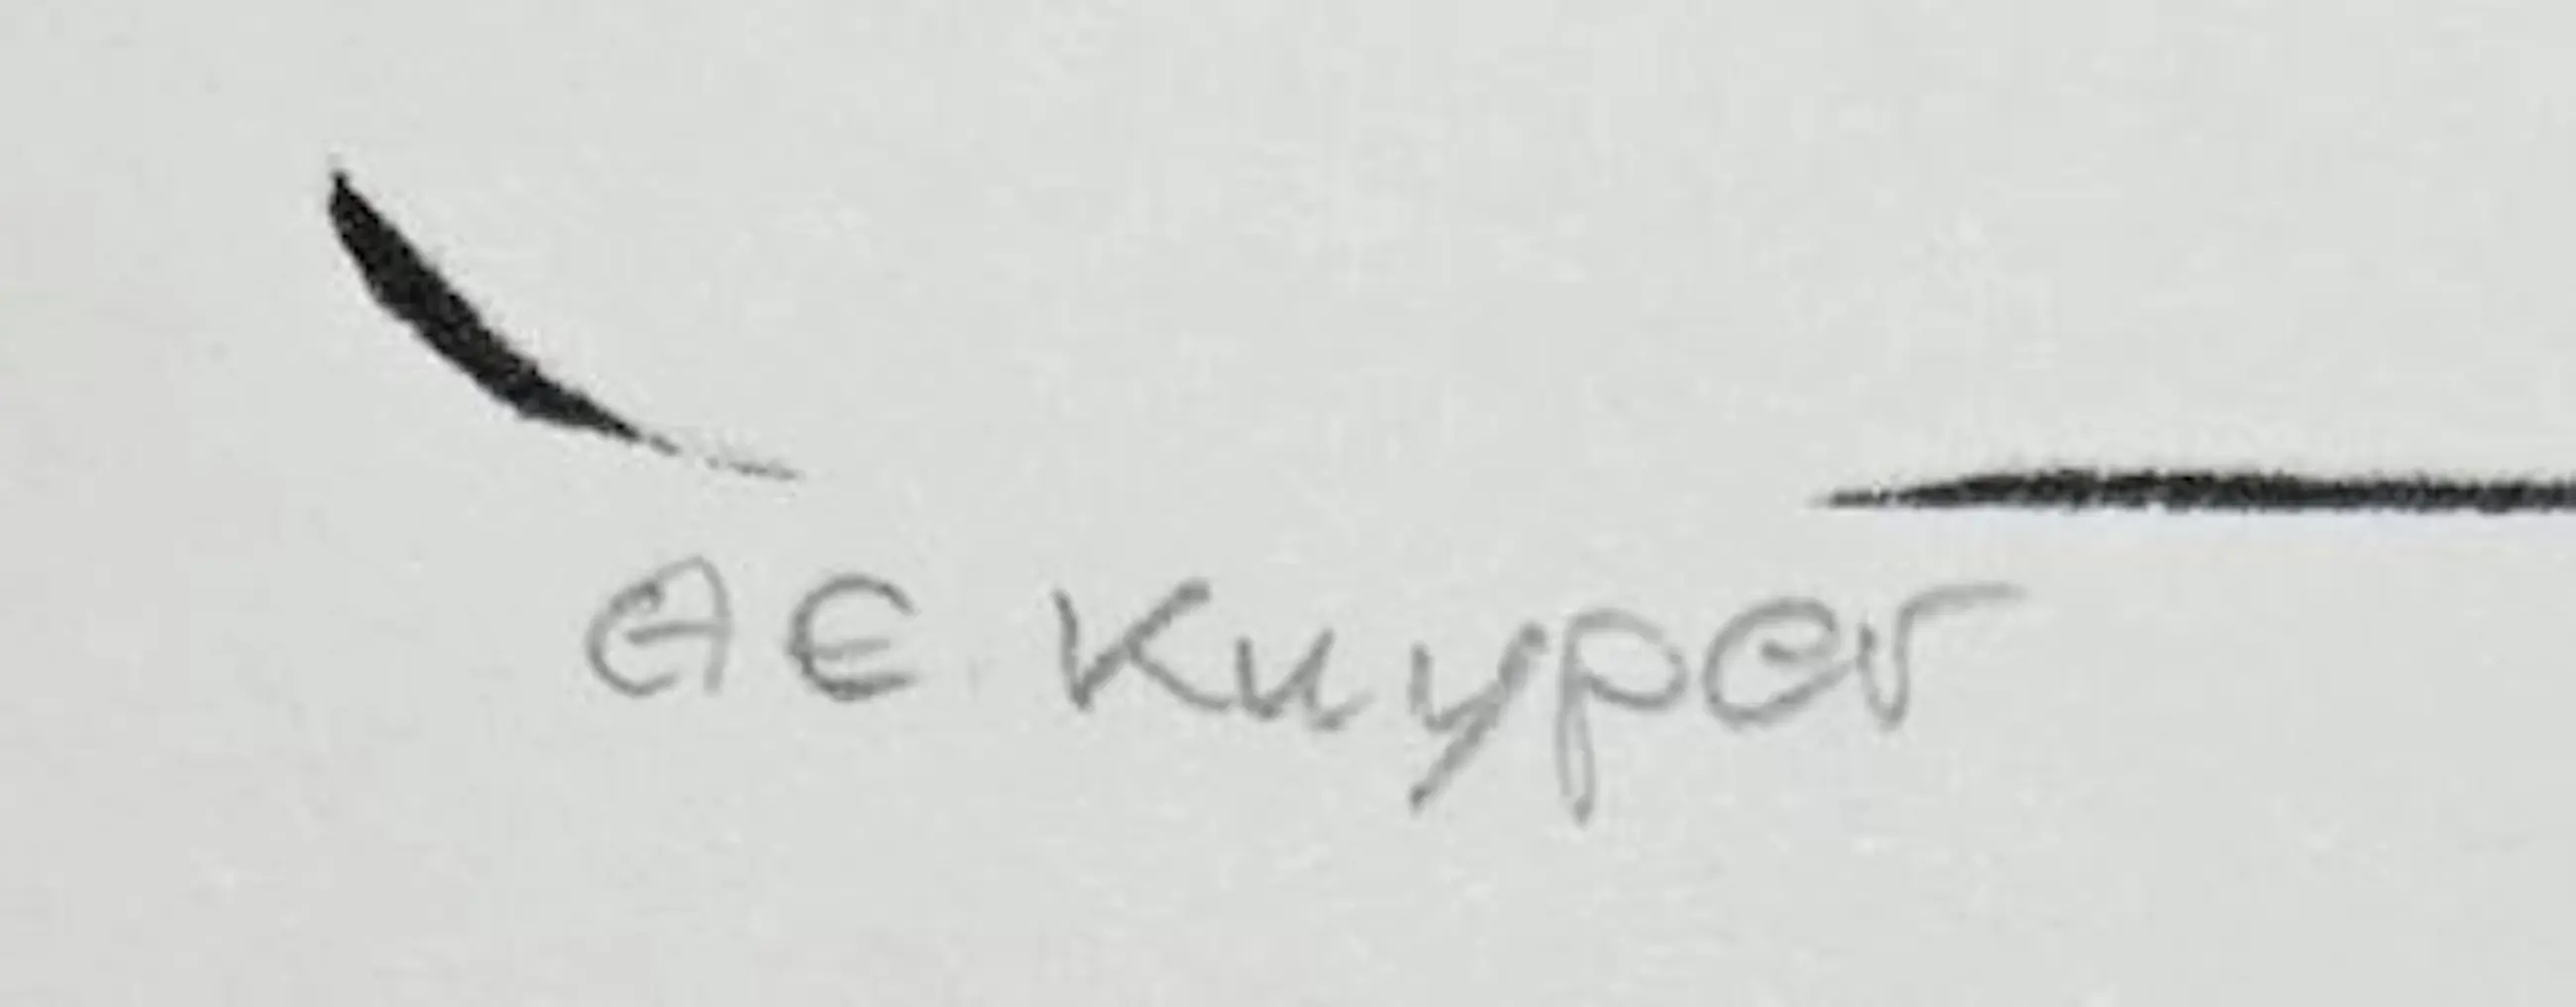 AE Kuyper